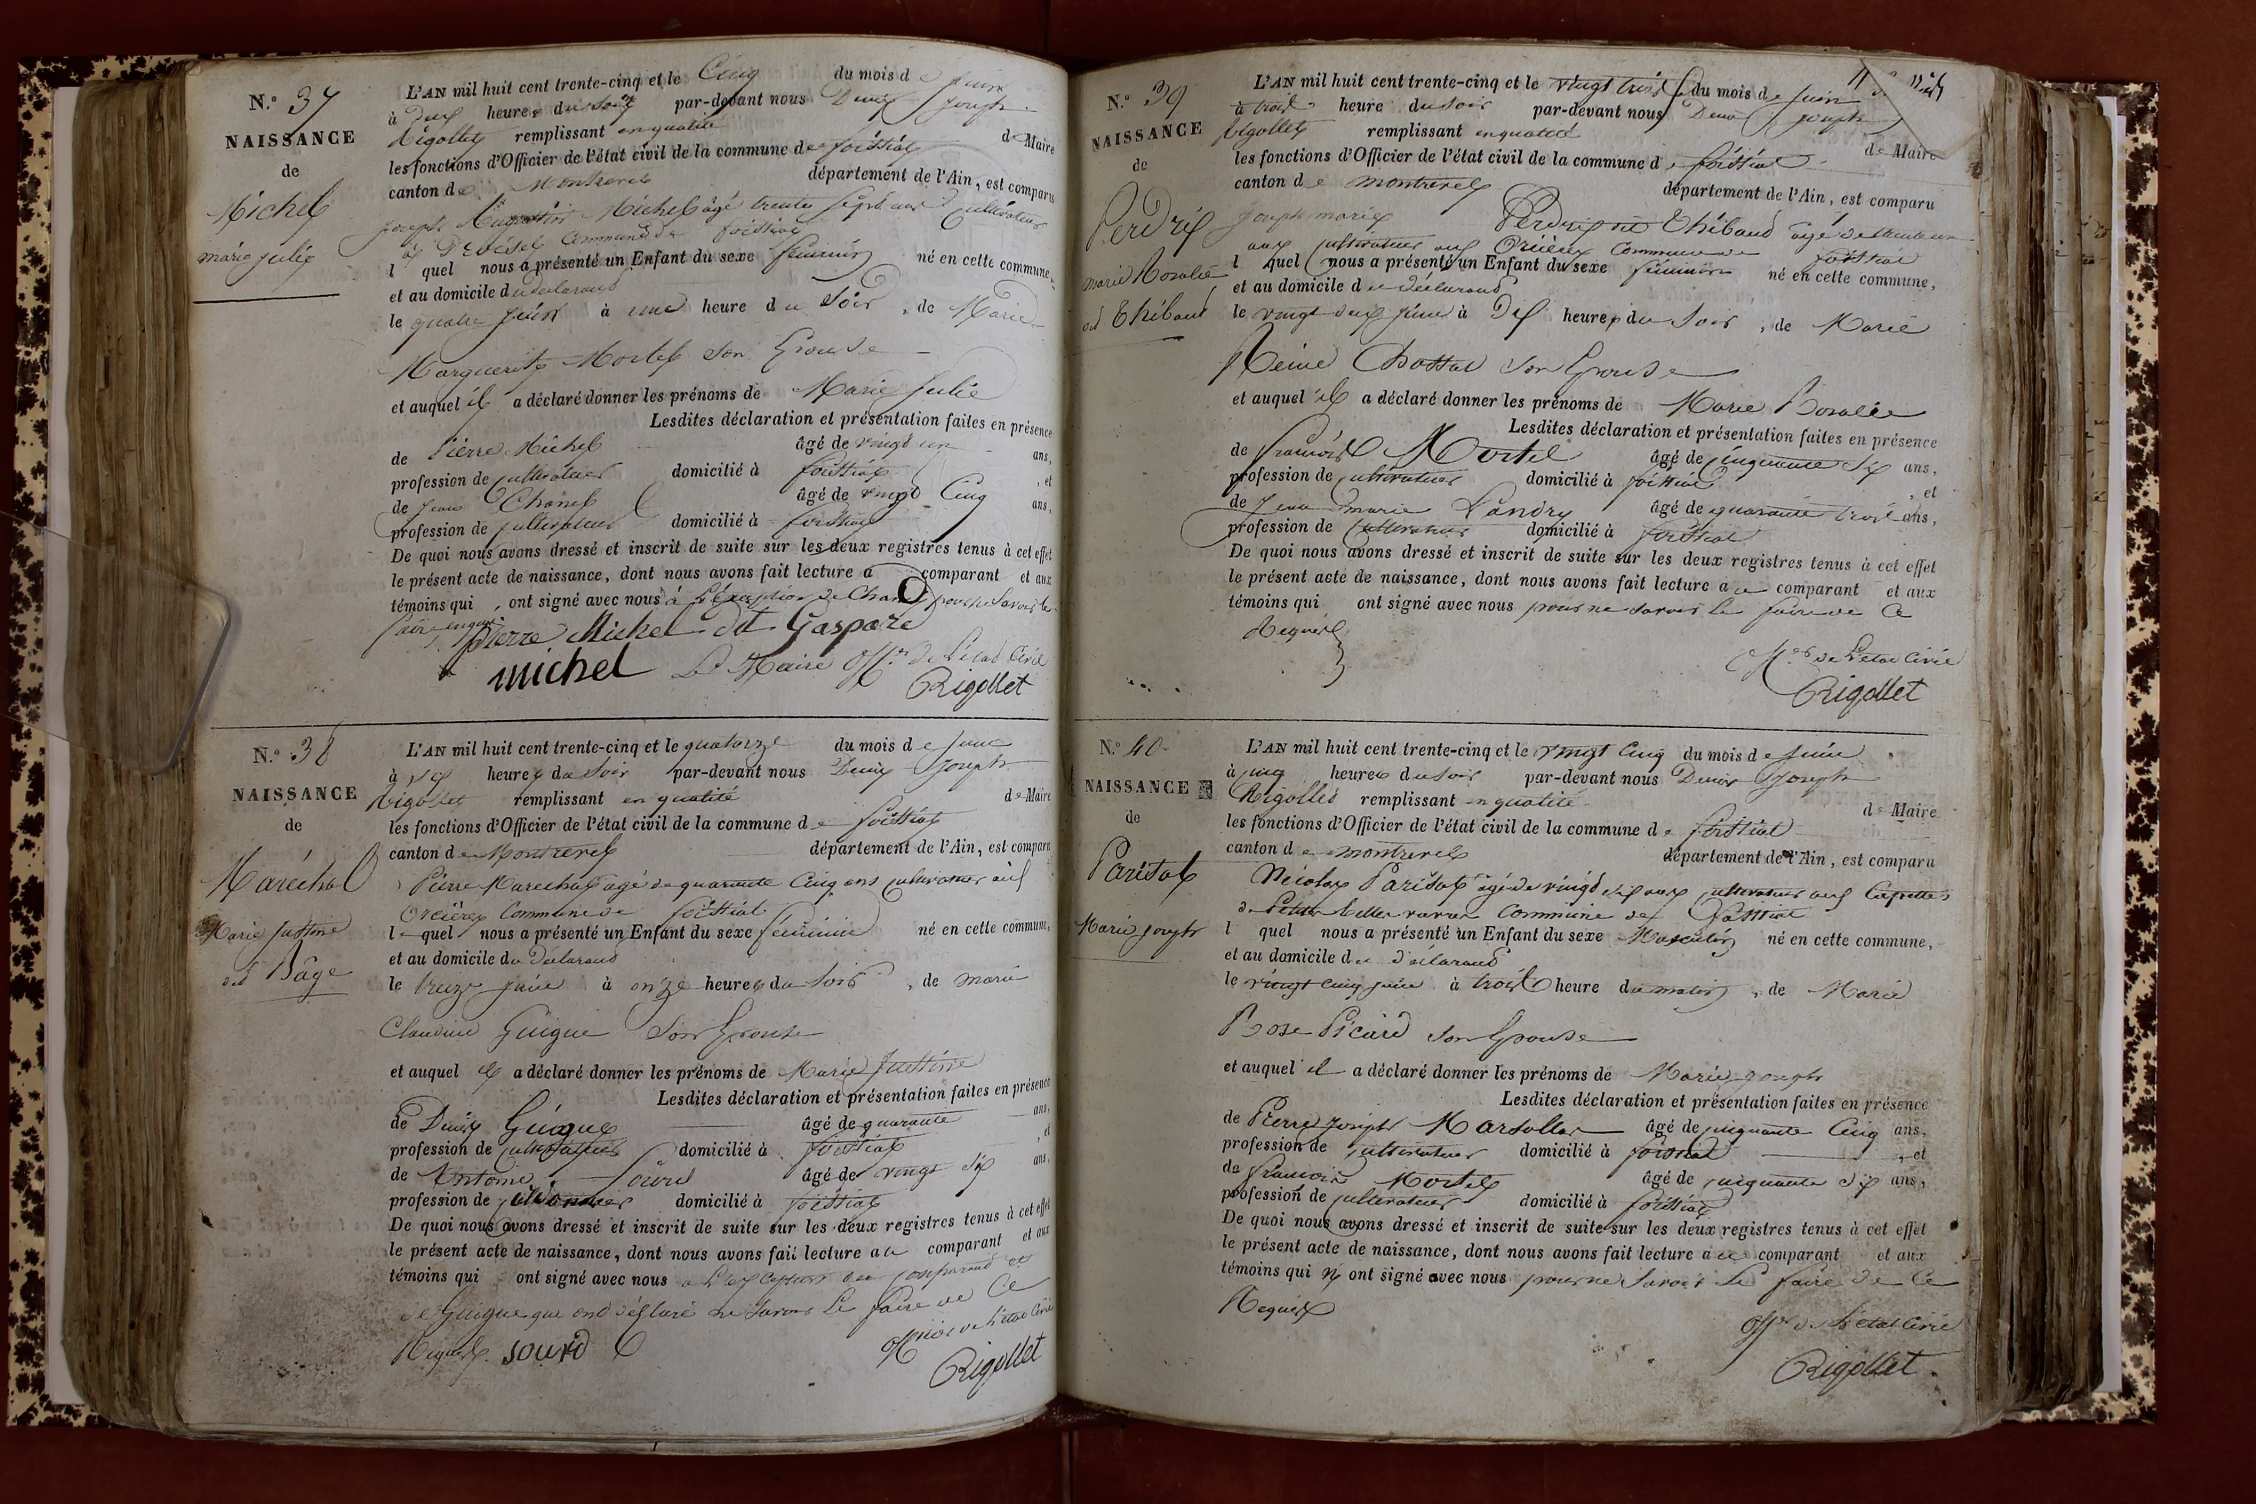 N.o 37
NAISSANCE
de
Michel
marie julie
L'AN mil huit cent trente-cinq et le Cinq du mois de juin
à deux heures du soir par-devant nous Denis Joseph
Rigollet remplissant en qualité de Maire
les fonctions d'Officier de l'état civil de la commune de foissiat
canton de Montrevel département de l'Ain, est comparu
joseph Michel âgé trente sept ans Cultivateur
commune de foissiat
l quel nous a présenté un Enfant du sexe féminin né en cette commune,
et au domicile du déclarant
le quatre juin à une heure du Soir, de Marie
Marguerite Mortel Son Epouse
et auquel il a déclaré donner les prénoms de Marie Julie
Lesdites déclaration et présentation faites en présence
de Pierre Michel âgé de vingt un ans,
profession de cultivateur domicilié à foissiat, et
de Jean Chanel âgé de vingt Cinq ans,
profession de cultivateur domicilié à foissiat
De quoi nous avons dressé et inscrit de suite sur les deux registres tenus à cet effet
le présent acte de naissance, dont nous avons fait lecture a comparant et aux
témoins qui, ont signé avec nous à l'éxception de Chanel pour ne Savoir le
faire enquis
pierre Michel dit Gaspard
michel Le Maire Off.er de L'état Civil
Rigollet
N.o 38
NAISSANCE
de
Maréchal
Marie Justine
dit Bâge
L'AN mil huit cent trente-cinq et le quatorze du mois de juin
à six heures du Soir par-devant nous Denis Joseph
Rigollet remplissant en qualité de Maire
les fonctions d'Officier de l'état civil de la commune de foissiat
canton de Montrevel département de l'Ain, est comparu
Pierre Marechal âgé de quarante Cinq ans cultivateur aux
Orcières Commune de foissiat
le quel nous a présenté un Enfant du sexe féminin né en cette commune,
et au domicile du Déclarant
le treize juin à onze heures du Soir, de marie
Claudine Guigue Son Epouse
et auquel il a déclaré donner les prénoms de Marie Justine
Lesdites déclaration et présentation faites en présence
de Denis Guigue âgé de quarante ans,
profession de cultivateur domicilié à foissiat, et
de Antoine Sourd âgé de vingt six ans,
profession de domicilié à foissiat
De quoi nous avons dressé et inscrit de suite sur les deux registres tenus à cet effet
le présent acte de naissance, dont nous avons fait lecture au comparant et aux
témoins qui ont signé avec nous a L'exception du comparant et
de Guigue que ont déclaré ne Savoir Le faire de Ce
Requis sourd
Officier de L'état Civil
Rigollet
N.o 39
NAISSANCE
de
Perdrix
marie Rosalie
dit Thibaud
L'AN mil huit cent trente-cinq et le vingt trois du mois de juin
à trois heure du soir par-devant nous Denis joseph
Rigollet remplissant en qualité de Maire
les fonctions d'Officier de l'état civil de la commune de foissiat
canton de montrevel département de l'Ain, est comparu
Joseph marie Perdrix dit Thibaud âgé de trente un
ans cultivateur aux Orcières Commune de foissiat
l quel nous a présenté un Enfant du sexe féminin né en cette commune,
et au domicile du déclarant
le vingt deux juin à Dix heures du Soir, de Marie
Reine Chossat Son Epouse
et auquel il a déclaré donner les prénoms de Marie Rosalie
Lesdites déclaration et présentation faites en présence
de francois Mortel âgé de cinquante six ans,
profession de cultivateur domicilié à foissiat, et
de Jean marie Landry âgé de quarante trois ans,
profession de cultivateur domicilié à foissiat
De quoi nous avons dressé et inscrit de suite sur les deux registres tenus à cet effet
le présent acte de naissance, dont nous avons fait lecture au comparant et aux
témoins qui ont signé avec nous pour ne savoir Le faire de Ce
Requis
Off.er de L'état Civil
Rigollet
N.o 40
NAISSANCE
de
Parisot
Marie joseph
L'AN mil huit cent trente-cinq et le vingt Cinq du mois de juin
à cinq heures du Soir par-devant nous Denis Joseph
Rigollet remplissant en qualité de Maire
les fonctions d'Officier de l'état civil de la commune de foissiat
canton de montrevel département de l'Ain, est comparu
Nicolas Parisot âgé de vingt six ans cultivateur aux
commune de foissiat
l quel nous a présenté un Enfant du sexe Masculin né en cette commune,
et au domicile du déclarant
le vingt cinq juin à trois heure du matin, de Marie
Rose Picard Son Epouse
et auquel il a déclaré donner les prénoms de Marie joseph
Lesdites déclaration et présentation faites en présence
de Pierre joseph Marsollat âgé de cinquante Cinq ans,
profession de cultivateur domicilié à foissiat, et
de francois Mortel âgé de cinquante six ans,
profession de cultivateur domicilié à foissiat
De quoi nous avons dressé et inscrit de suite sur les deux registres tenus à cet effet
le présent acte de naissance, dont nous avons fait lecture au comparant et aux
témoins qui n'ont signé avec nous pour ne Savoir Le faire de Ce
Requis
Off.er de L'état Civil
Rigollet